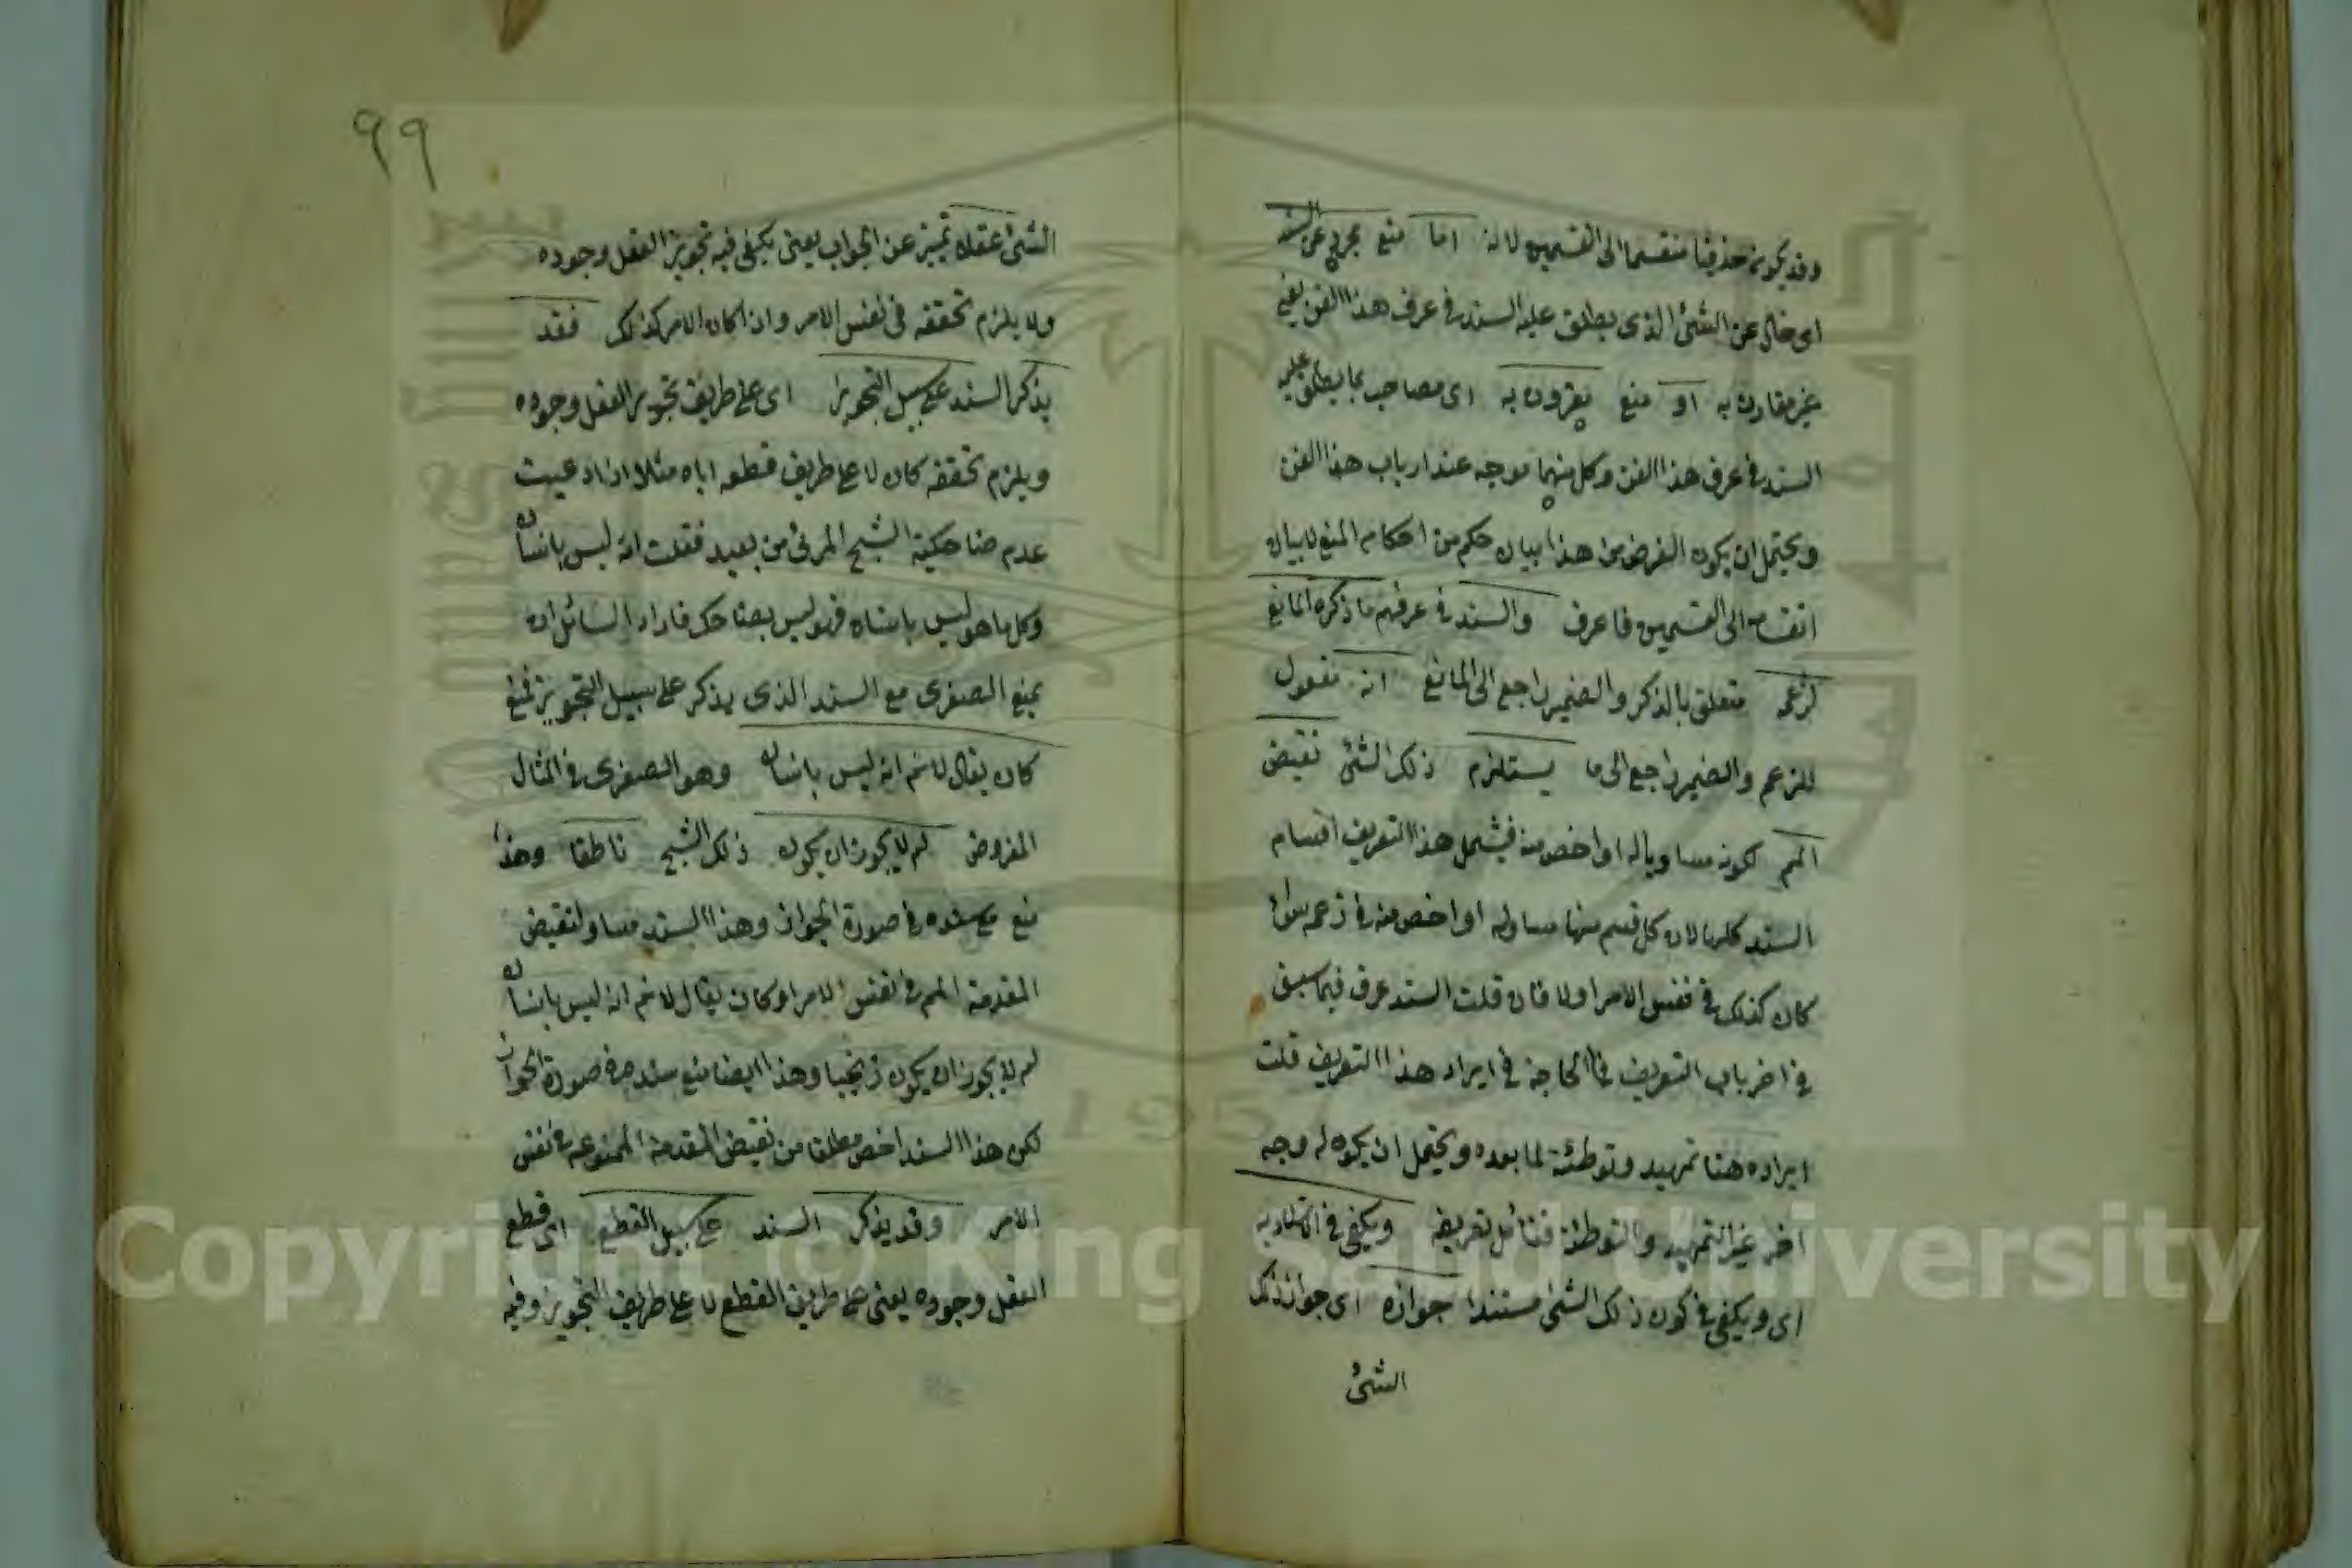 وقد يكون حذفيا منقسما الى القسمين لانه اما منع مجرد عن السند
اى خالى عن الشئ الذى يطلق عليه السند فى عرف هذا الفن يعنى
غير مقارن به او منع مقرون به اى مصاحب بما يطلق عليه
السند فى عرف هذا الفن وكل منهما موجه عند ارباب هذا الفن
ويحتمل ان يكون الغرض من هذا بيان حكم من احكام المنع لا بيان
انقسامه الى القسمين فاعرف والسند فى عرفهم ما ذكره المانع
لزعمه متعلق بالذكر والضمير راجع الى المانع انه مفعول
للزعم والضمير راجع الى ما يستلزم ذلك الشئ نقيض
المم لكونه مساويا له او اخص منه فيشمل هذا التعريف اقسام
السند كلها لان كل قسم منها مساو له او اخص منه فى زعمه سواء
كان كذلك فى نفس الامر اولا فان قلت السند عرف فيما سبق
فى اخر باب التعريف فما الحاجة فى ايراد هذا التعريف قلت
ايراده هنا تمهيد وتوطئة لما بعده ويحتمل ان يكون له وجه
اخر غير التمهيد والتوطئة ويكفى فى
اى ويكفى فى كون ذلك الشئ مستندا جوازه اى جواز ذلك
الشئ
٩٩
الشئ عقلا تمييز عن الجواب يعنى يكفى فيه تجويز العقل وجوده
ولا يلزم تحققه فى نفس الامر واذا كان الامر كذلك فقد
يذكر السند على سبيل التجويز اى على طريق تجويز العقل وجوده
ويلزم تحققه كان لا على طريق قطعه اياه مثلا اذا ادعيت
عدم ضاحكية الشبح المرئى من بعيد فقلت انه ليس بانسان
وكل ما هو ليس بانسان فهو ليس بضاحك فاراد السائل ان
يمنع الصغرى مع السند الذى يذكر على سبيل التجويز فمنع
كان يقال لا نم انه ليس بانسان وهو الصغرى فى المثال
المفروض لم لا يجوز ان يكون ذلك الشبح ناطقا وهذا
منع مع سنده فى صورة الجواز وهذا السند مساو لنقيض
المقدمة المم فى نفس الامر او كان يقال لا نم انه ليس بانسان
لم لا يجوز ان يكون زنجيا وهذا ايضا منع سنده فى صورة الجواز
لكن هذا السند اخص مطلقا من نقيض المقدمة الممنوعة فى نفس
الامر وقد يذكر السند على سبيل القطع اى قطع
العقل وجوده يعنى على طريق القطع لا على طريق التجويز وفيه
Copyright © King Saud University
1957